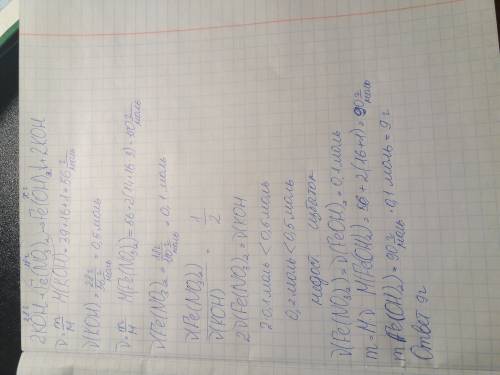 28г 18г x г
2KOH + Fe(NO3)2 → Fe(OH)2↓ + 2KOH
ν = m/M M(KOH) = 39+16+1 = 56 г/моль
ν(KOH) = 28г/56 г/моль = 0,5 моль
ν = m/M M(Fe(NO3)2) = 56+2(14+16·3) = 180 г/моль
ν(Fe(NO3)2) = 18г/180 г/моль = 0,1 моль
ν(Fe(NO3)2)/ν(KOH) = 1/2
2ν(Fe(NO3)2) = ν(KOH)
2·0,1 моль < 0,5 моль
0,2 моль < 0,5 моль
недост избыток
ν(Fe(NO3)2) = ν(Fe(OH)2) = 0,1 моль
m = Mν M(Fe(OH)2) = 56+2(16+1) = 90 г/моль
m Fe(OH)2) = 90 г/моль · 0,1 моль = 9г
Ответ 9г